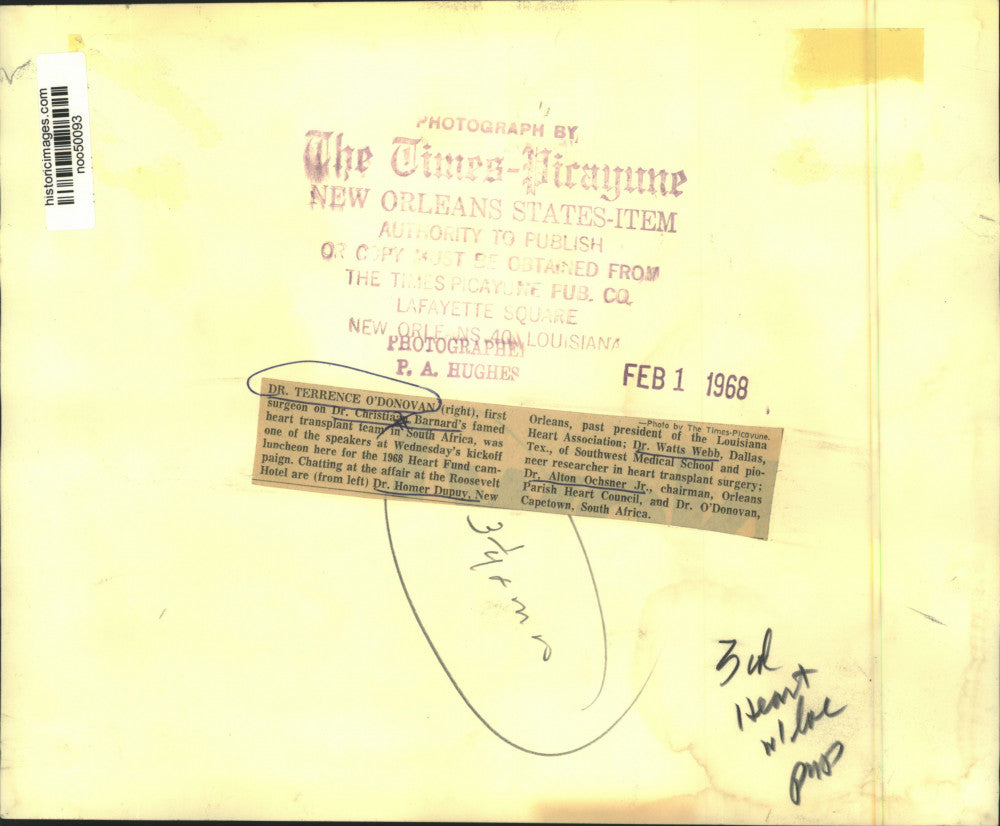 historicimages.com
noo50093
PHOTOGRAPH BY
The Times-Picayune
NEW ORLEANS STATES-ITEM
AUTHORITY TO PUBLISH
OR COPY MUST BE OBTAINED FROM
THE TIMES PICAYUNE PUB. CO.
LAFAYETTE SQUARE
NEW ORLEANS 40, LOUISIANA
PHOTOGRAPHER
P. A. HUGHES
FEB 1 1968
DR. TERRENCE O'DONOVAN (right), first
surgeon on Dr. Christian Barnard's famed
heart transplant team in South Africa, was
one of the speakers at Wednesday's kickoff
luncheon here for the 1968 Heart Fund cam-
paign. Chatting at the affair at the Roosevelt
Hotel are (from left) Dr. Homer Dupuy, New
—Photo by The Times-Picayune.
Orleans, past president of the Louisiana
Heart Association; Dr. Watts Webb, Dallas,
Tex., of Southwest Medical School and pio-
neer researcher in heart transplant surgery;
Dr. Alton Ochsner Jr., chairman, Orleans
Parish Heart Council, and Dr. O'Donovan,
Capetown, South Africa.
3 col
Heart